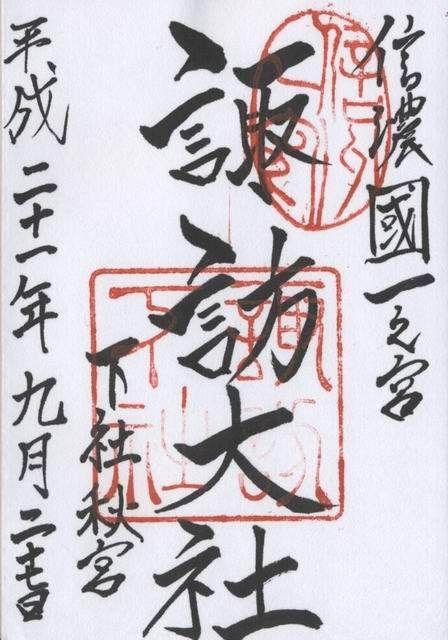 信濃國一之宮
諏訪大社
下社秋宮
平成二十一年九月
諏訪
下社